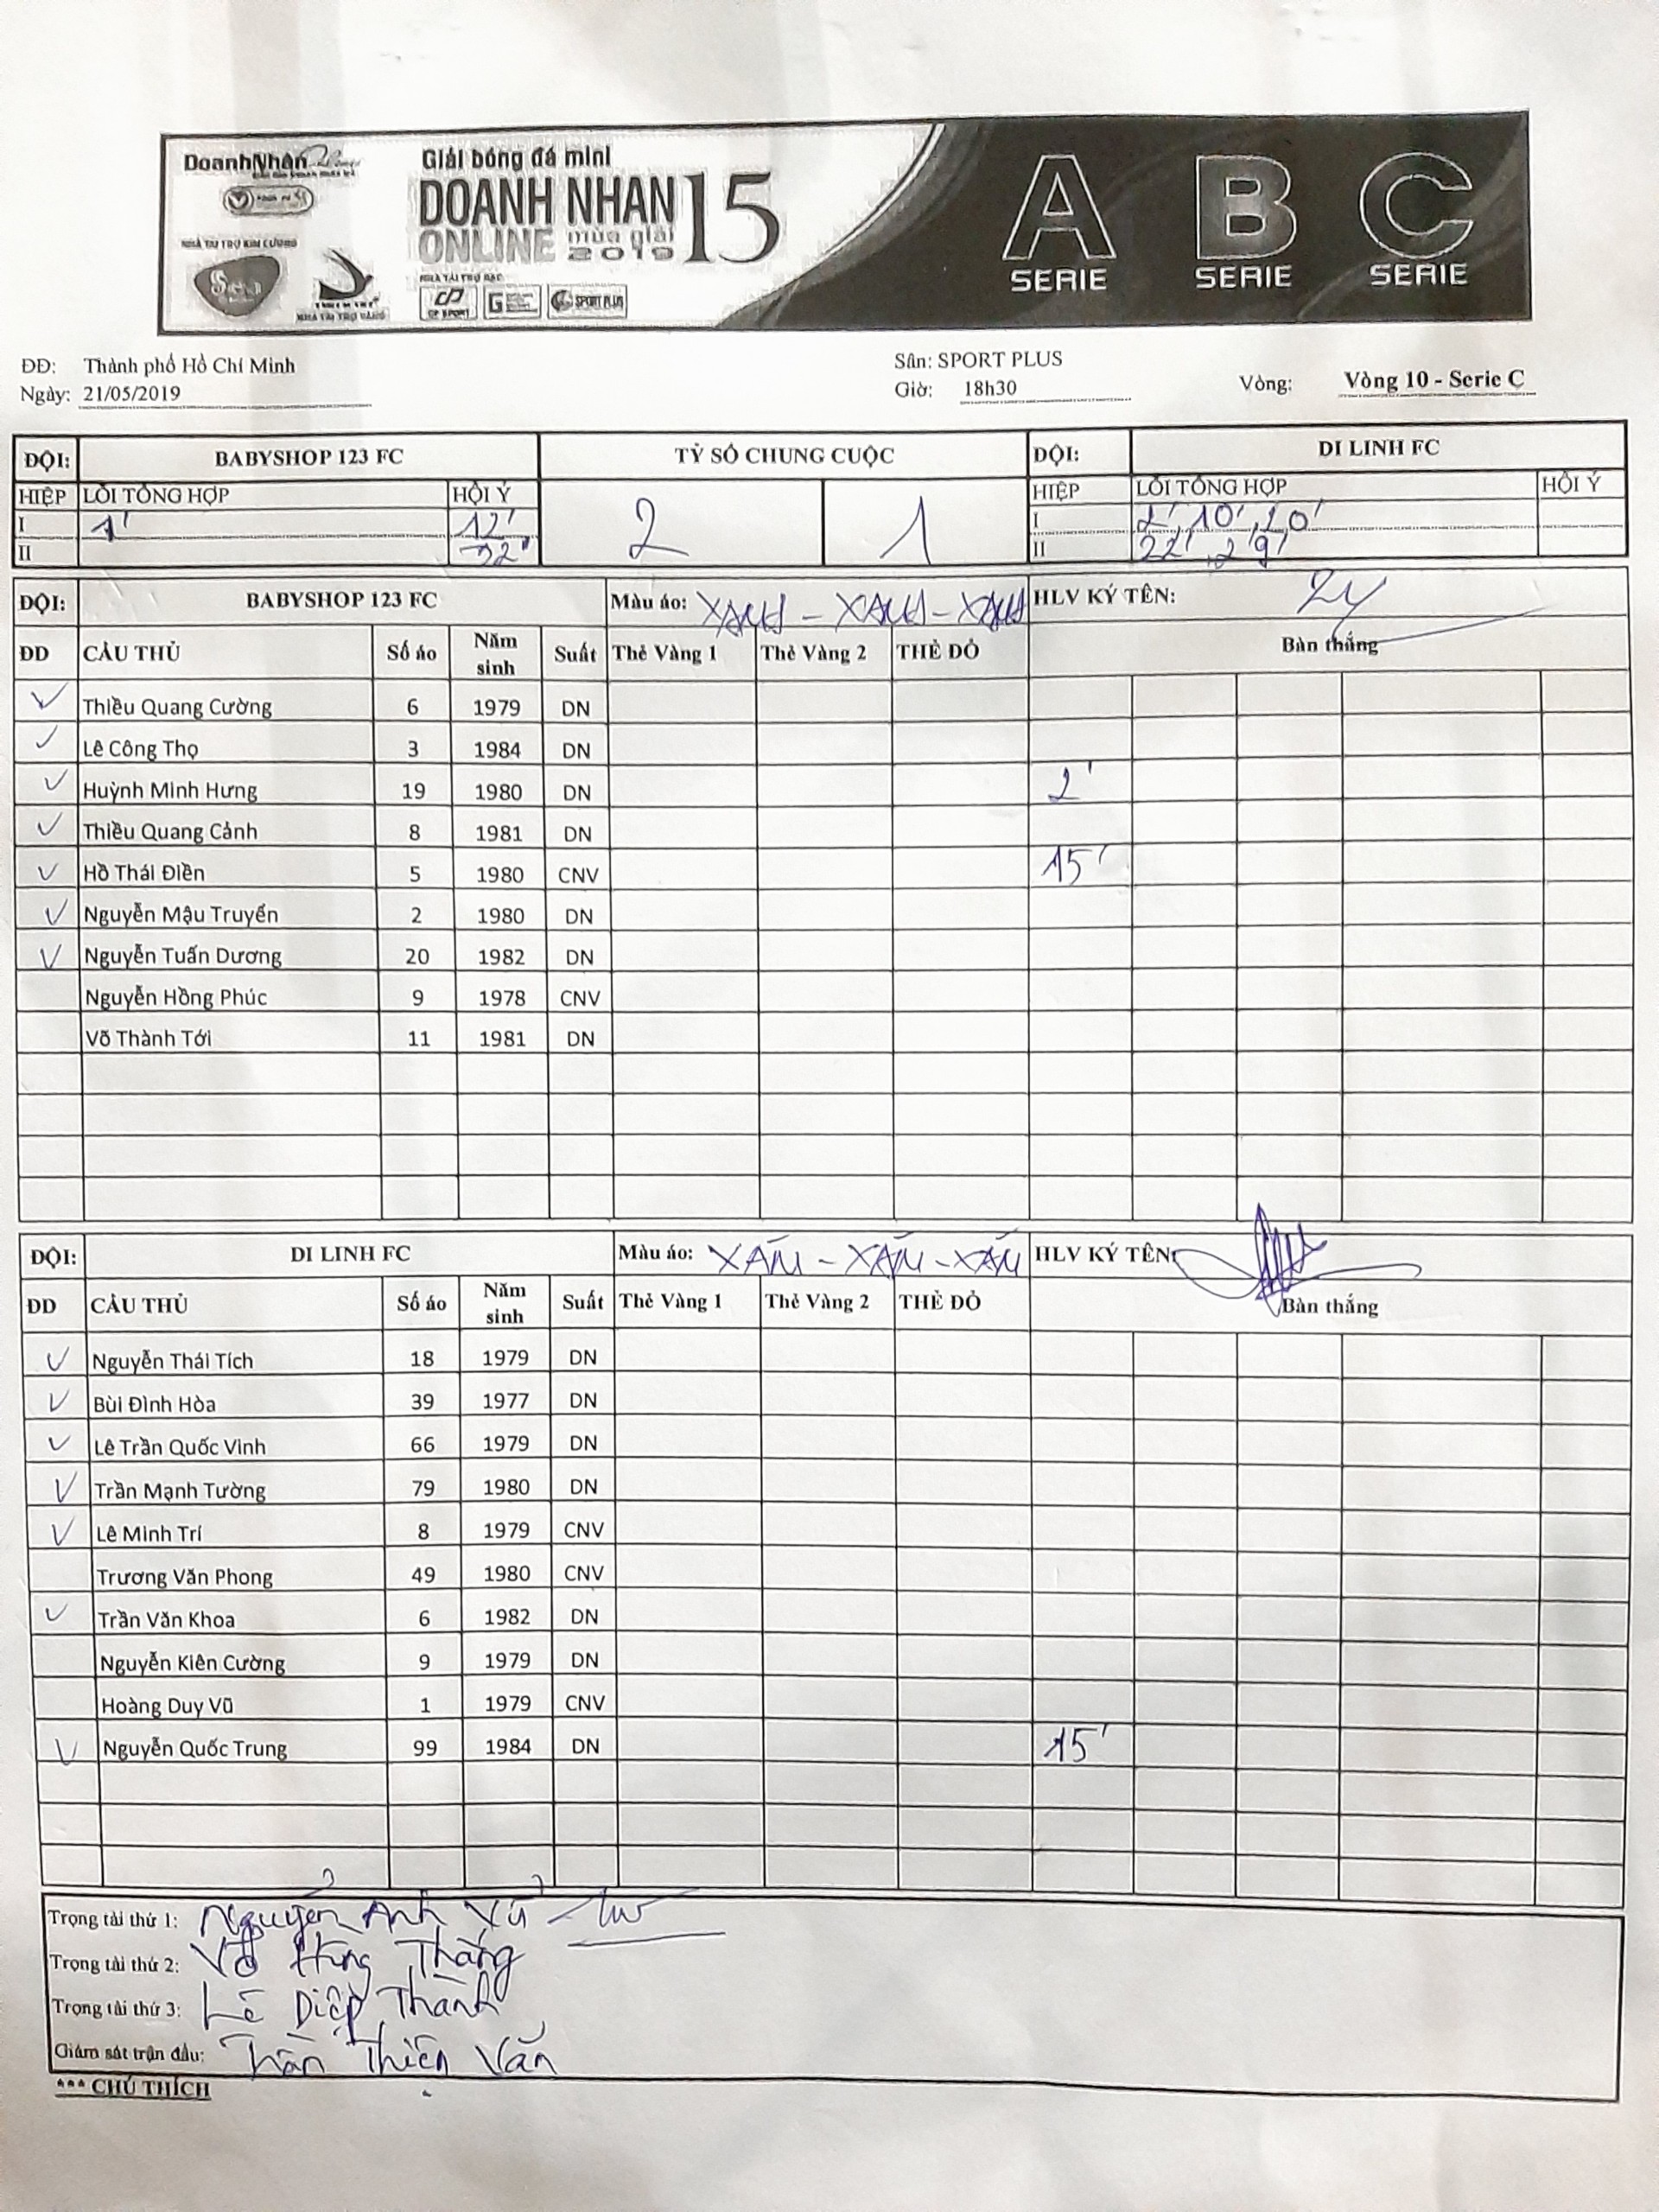 DoanhNhân
Giải bóng đá mini
DOANH NHAN 15
ONLINE mùa giải 2019
NHÀ TÀI TRỢ KIM CƯƠNG
NHÀ TÀI TRỢ BẠC
NHÀ TÀI TRỢ VÀNG
CP SPORT
SPORT PLUS
A SERIE B SERIE C SERIE
ĐĐ: Thành phố Hồ Chí Minh Sân: SPORT PLUS
Ngày: 21/05/2019 Giờ: 18h30 Vòng: Vòng 10 - Serie C
ĐỘI: BABYSHOP 123 FC TỶ SỐ CHUNG CUỘC ĐỘI: DI LINH FC
HIỆP LỖI TỔNG HỢP HỘI Ý 2 1 HIỆP LỖI TỔNG HỢP HỘI Ý
I 1' 12' I 2', 10', 20'
II 32' II 22', 29'
ĐỘI: BABYSHOP 123 FC Màu áo: XANH - XANH - XANH HLV KÝ TÊN:
DD CẦU THỦ Số áo Năm sinh Suất Thẻ Vàng 1 Thẻ Vàng 2 THẺ ĐỎ Bàn thắng
Thiều Quang Cường 6 1979 DN
Lê Công Thọ 3 1984 DN
Huỳnh Minh Hưng 19 1980 DN 2'
Thiều Quang Cảnh 8 1981 DN
Hồ Thái Điền 5 1980 CNV 15'
Nguyễn Mậu Truyển 2 1980 DN
Nguyễn Tuấn Dương 20 1982 DN
Nguyễn Hồng Phúc 9 1978 CNV
Võ Thành Tới 11 1981 DN
ĐỘI: DI LINH FC Màu áo: XÁM - XÁM - XÁM HLV KÝ TÊN:
DD CẦU THỦ Số áo Năm sinh Suất Thẻ Vàng 1 Thẻ Vàng 2 THẺ ĐỎ Bàn thắng
Nguyễn Thái Tích 18 1979 DN
Bùi Đình Hòa 39 1977 DN
Lê Trần Quốc Vinh 66 1979 DN
Trần Mạnh Tường 79 1980 DN
Lê Minh Trí 8 1979 CNV
Trương Văn Phong 49 1980 CNV
Trần Văn Khoa 6 1982 DN
Nguyễn Kiên Cường 9 1979 DN
Hoàng Duy Vũ 1 1979 CNV
Nguyễn Quốc Trung 99 1984 DN 15'
Trọng tài thứ 1: Nguyễn Anh Vũ
Trọng tài thứ 2: Võ Hùng Thắng
Trọng tài thứ 3: Lê Diệp Thành
Giám sát trận đấu: Trần Thiện Văn
*** CHÚ THÍCH